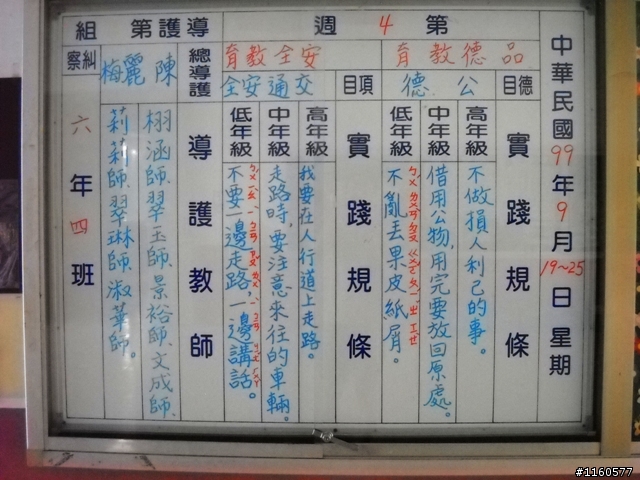 中華民國99年9月19~25日星期
第4週
品德教育
德目
公德
實踐規條
高年級
不做損人利己的事。
中年級
借用公物,用完要放回原處。
低年級
不亂丟果皮紙屑。
安全教育
項目
交通安全
實踐規條
高年級
我要在人行道上走路。
中年級
走路時,要注意來往的車輛。
低年級
不要一邊走路,一邊講話。
導護第 組
總導護
陳麗梅
導護教師
栩涵師、翠玉師、景裕師、文成師、
莉莉師、翠琳師、淑華師。
糾察
六年四班
#1160577